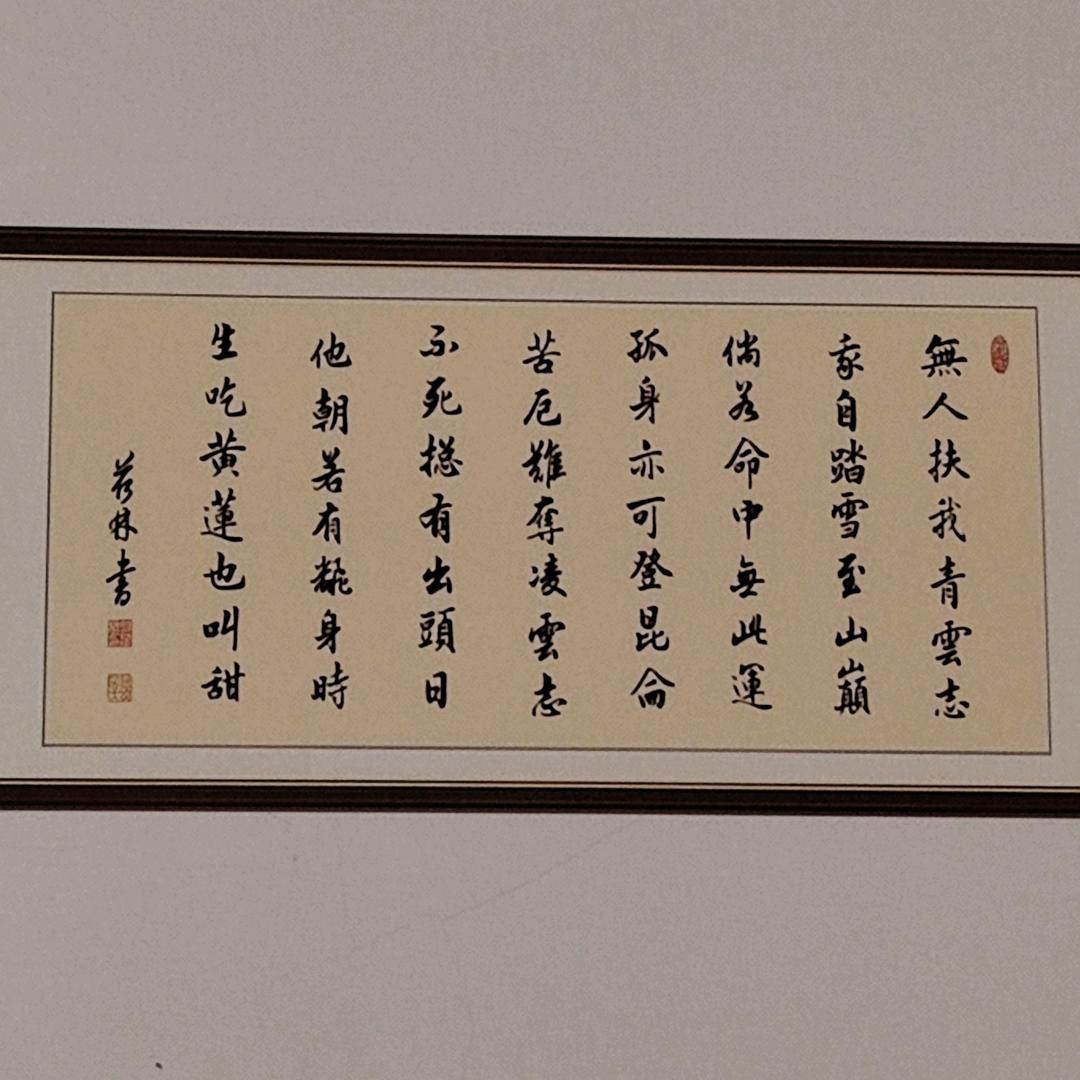 無人扶我青雲志
我自踏雪至山巔
倘若命中無此運
孤身亦可登昆侖
苦厄難奪凌雲志
不死總有出頭日
他朝若有翻身時
生吃黃蓮也叫甜
林書